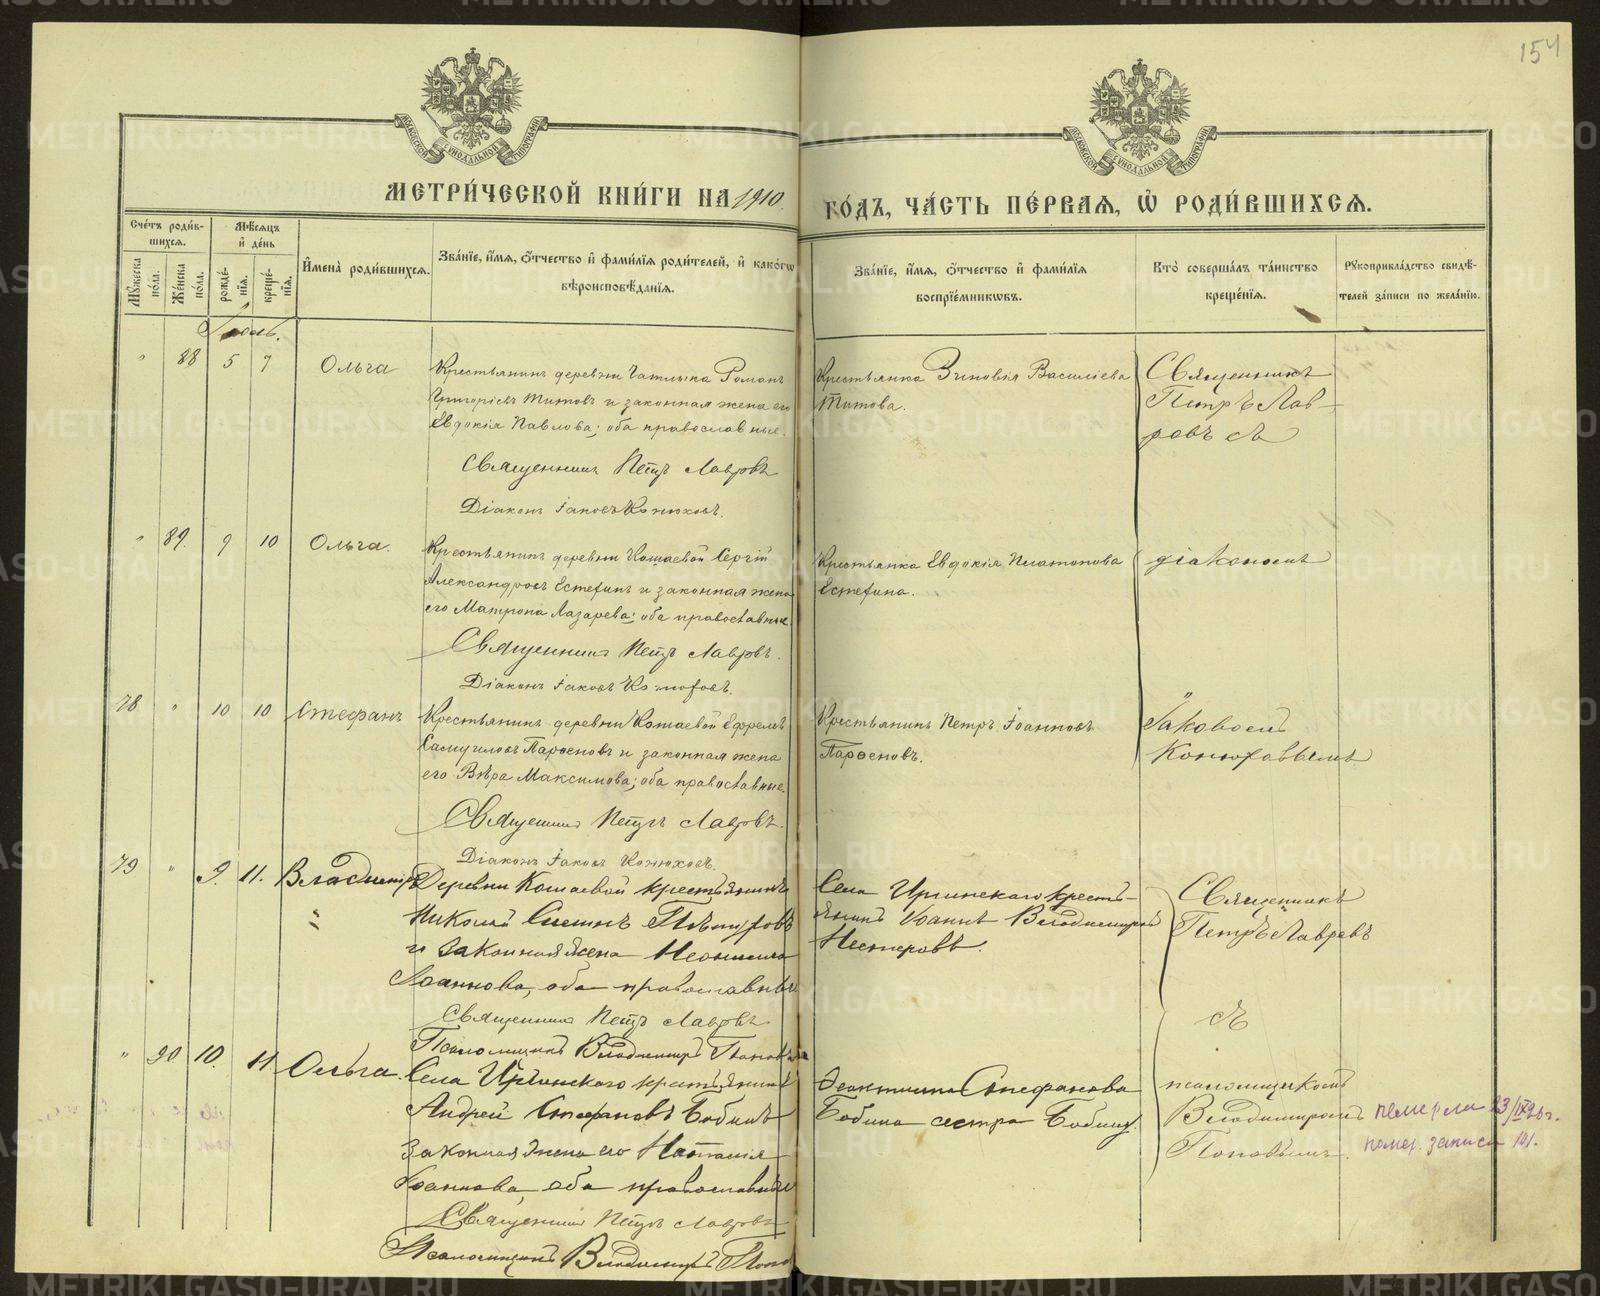 154
МЕТРИ́ЧЕСКОЙ КНИ́ГИ НА 1910
ГО́ДЪ, ЧА́СТЬ ПЕ́РВАЯ, Ѽ РОДИ́ВШИХСЯ.
Сче́тъ роди́в-
шихся.
Мѣ́сяцъ
и҆ де́нь
Мꙋ́жеска по́ла.
Же́нска по́ла.
рожде́-
нїя.
креще́-
нїя.
И҆мена̀ роди́вшихся.
Зва́нїе, и҆́мя, ѻ҆́тчество и҆ фами́лїя роди́телей, и҆ како́гѡ
вѣроисповѣ́данїя.
Зва́нїе, и҆́мя, ѻ҆́тчество и҆ фами́лїя
воспрїе́мникѡвъ.
Кто̀ соверша́лъ та́инство
креще́нїя.
Рꙋкоприкла́дство свидѣ́-
телей за́писи по жела́нїю.
Іюль.
" 88 5 7 Ольга
Крестьянинъ деревни Татлыка Романъ
Григоріевъ Титовъ и законная жена его
Евдокія Павлова; оба православные.
Священникъ Петръ Лавровъ
Діаконъ Іаковъ Конюховъ.
Крестьянка Зиновія Василіева
Титова.
Священникъ
Петръ Лав-
ровъ съ
" 89. 9 10 Ольга.
Крестьянинъ деревни Кошаевой Сергій
Александровъ Естехинъ и законная жена
его Матрона Лазарева; оба православные.
Священникъ Петръ Лавровъ.
Діаконъ Іаковъ Конюховъ.
Крестьянка Евдокія Платонова
Естехина.
діакономъ
78 " 10 10 Стефанъ
Крестьянинъ деревни Кошаевой Ефремъ
Самуиловъ Парѳеновъ и законная жена
его Вѣра Максимова; оба православные.
Священникъ Петръ Лавровъ.
Діаконъ Іаковъ Конюховъ.
Крестьянинъ Петръ Іоанновъ
Парѳеновъ.
Іаковомъ
Конюховымъ
79 " 9. 11. Владимиръ
Деревни Кошаевой крестьянинъ
Николай
и законная жена Неонила
Іоаннова, оба православные
Священникъ Петръ Лавровъ
Псаломщикъ Владимиръ Поповъ
Села Иргинскаго кресть-
янинъ Іоаннъ Владимировъ
Нестеровъ.
Священникъ
Петръ Лавровъ
съ
" 90 10. 11 Ольга.
Села Иргинскаго крестьянинъ
Андрей Стефановъ Бобинъ
законная жена его Наталия
Іоаннова, оба православные
Священникъ Петръ Лавровъ
Псаломщикъ Владимиръ Попо
Феоктиста Стефанова
Бобина сестра Бобину.
псаломщикомъ
Владимиромъ
Поповымъ.
померла 23/IX
номер. записи 101.